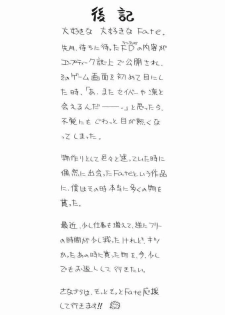 後記
大好きな 大好きなFate。
先月、待ちに待ったFDの内容が
コンプティーク誌上で公開され、
そのゲーム画面を初めて目にし
た時「あ、またセイバーや凛と
会えるんだ――。」と思ったら、
不覚にもじわっと目が熱くな
ってしまった。
物作りとして色々と迷っていた時に
偶然に出会ったFateという作品
に、僕はその時本当に多くの物を
貰った。
最近、少し仕事を増えて、
の時間が少し減ったけれど、
かったあの時に貰った物を、今、少し
でもお返しして行きたい。
さなぎりは、もっともっとFate応援
して行きます!!